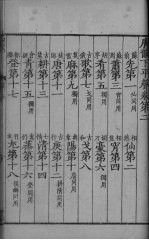 廣韻下平聲卷第二
先第一
仙同用
仙第二
蕭第三
宵同用
宵第四
肴第五
獨用
豪第六
獨用
歌第七
戈同用
戈第八
麻第九
獨用
陽第十
唐同用
唐第十一
庚第十二
耕清同用
耕第十三
清第十四
青第十五
獨用
蒸第十六
登同用
登第十七
尤第十八
侯幽同用